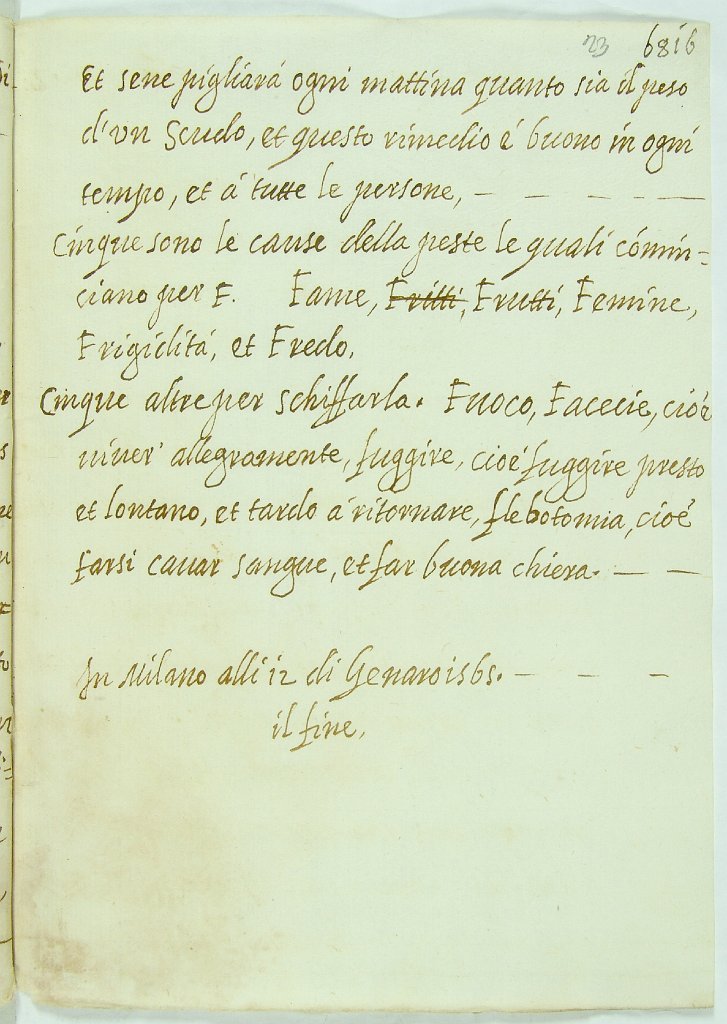 23 6816
Et sene pigliarà ogni mattina quanto sia il peso
d'un Scudo, et questo rimedio è buono in ogni
tempo, et à tutte le persone, — — — — —
Cinque sono le cause della peste le quali comin=
ciano per F. Fame, Fritti, Frutti, Femine,
Frigidità, et Fredo.
Cinque altre per schiffarla. Fuoco, Facecie, cioè
viver' allegramente, fuggire, cioè fuggire presto
et lontano, et tardo à ritornare, flebotomia, cioè
farsi cavar sangue, et far buona chiera. — —
In Milano alli 12 di Genaro 1565. — — —
il fine.